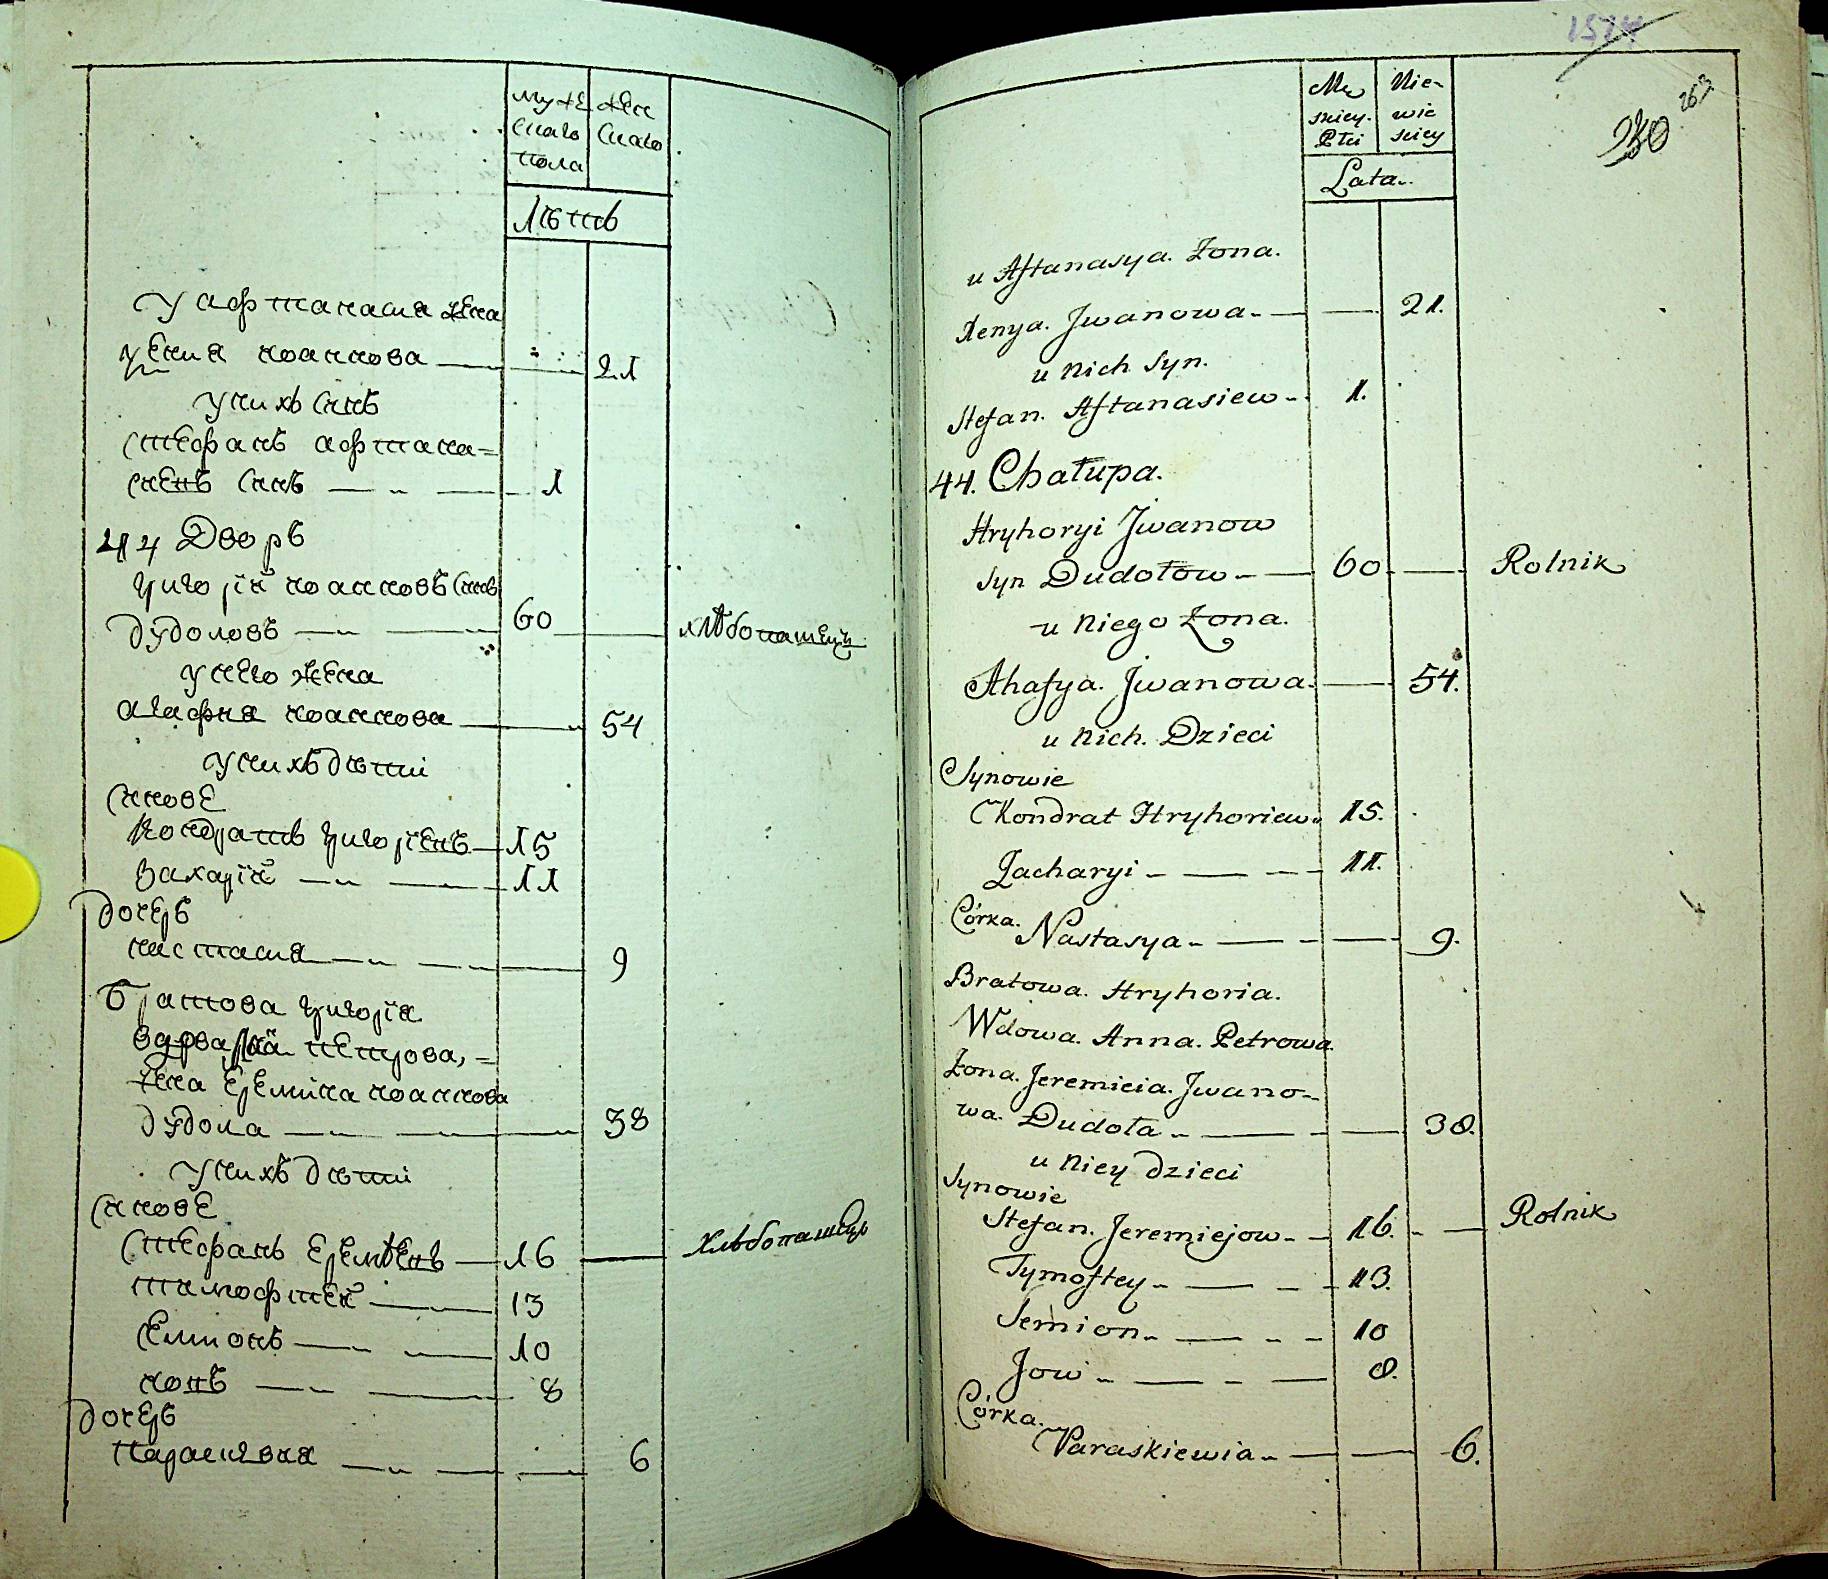 муже
скаго
пола
жен
скаго
лѣтъ
у афтанасия жена
ѯения иоаннова 21
у нихъ синъ
стефанъ афтана=
сиевъ синъ 1
44 Дворъ
григорій иоанновъ синъ
дудоловъ 60 хлѣбопашецъ
у него жена
агафия иоаннова 54
у нихъ дѣти
синове
кондратъ григориевъ 15
захарій 11
дочеръ
настасия 9
братова григорія
вдова анна петрова, =
жена еремиїа иоаннова
дудола 38
у нихъ дѣти
синове
стефанъ еремѣевъ 16 Хлѣбопашецъ
тимофтей 13
семионъ 10
иовъ 8
дочеръ
параскивия 6
1574
263
230
Mę
skiey
Płci
Nie-
wie
skiey
Lata
u Aftanasya. Żona.
Xenya. Jwanowa 21.
u nich Syn.
Stefan. Aftanasiew 1.
44. Chałupa.
Hryhoryi Jwanow
syn Dudołow 60 Rolnik
u niego Żona.
Ahafya. Jwanowa. 54.
u nich. Dzieci
Synowie
Kondrat Hryhoriew 15.
Zacharyi 11.
Córka. Nastasya 9.
Bratowa. Hryhoria.
Wdowa. Anna. Petrowa.
Żona. Jeremieia. Jwano-
wa. Dudoła 38.
u niey dzieci
Synowie
Stefan. Jeremiejow 16. Rolnik
Tymoftey 13.
Semion 10
Jow 8.
Córka.
Paraskiewia 6.